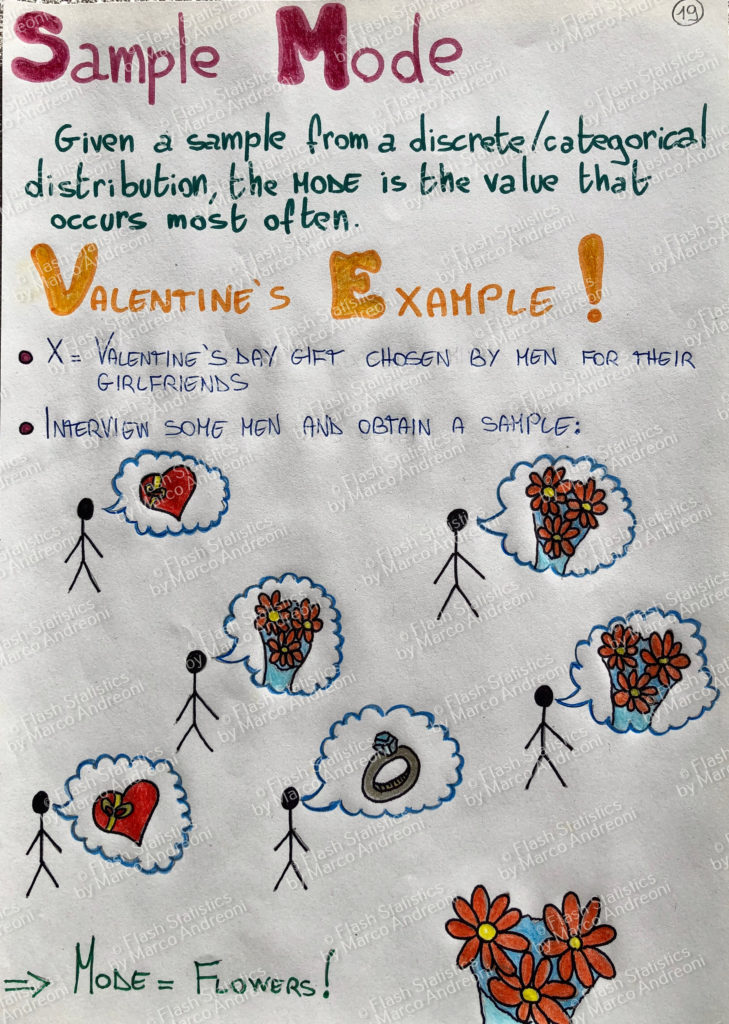 19
Sample Mode
Given a sample from a discrete/categorical
distribution, the MODE is the value that
occurs most often.
VALENTINE'S EXAMPLE!
X = VALENTINE'S DAY GIFT CHOSEN BY MEN FOR THEIR
GIRLFRIENDS
INTERVIEW SOME MEN AND OBTAIN A SAMPLE:
=> MODE = FLOWERS!
© Flash Statistics
by Marco Andreoni